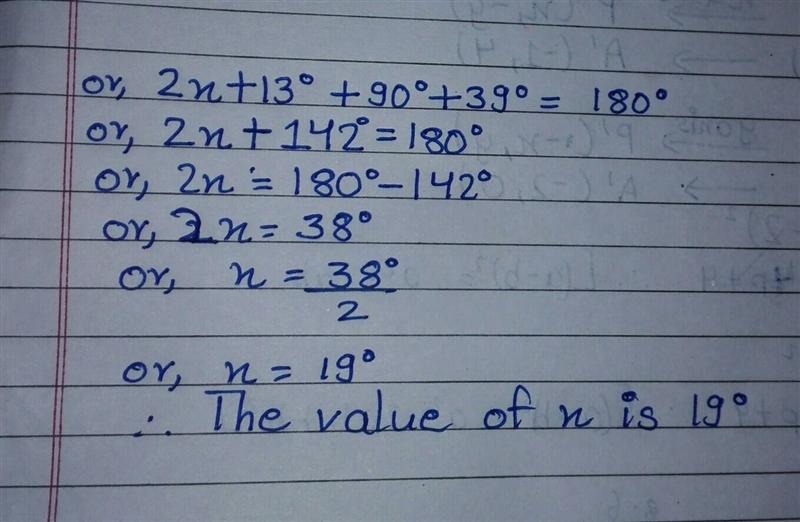 or, 2x+13° +90°+39° = 180°
or, 2x + 142° = 180°
or, 2x = 180° - 142°
or, 2x = 38°
or, x = 38°
2
or, x = 19°
∴ The value of x is 19°